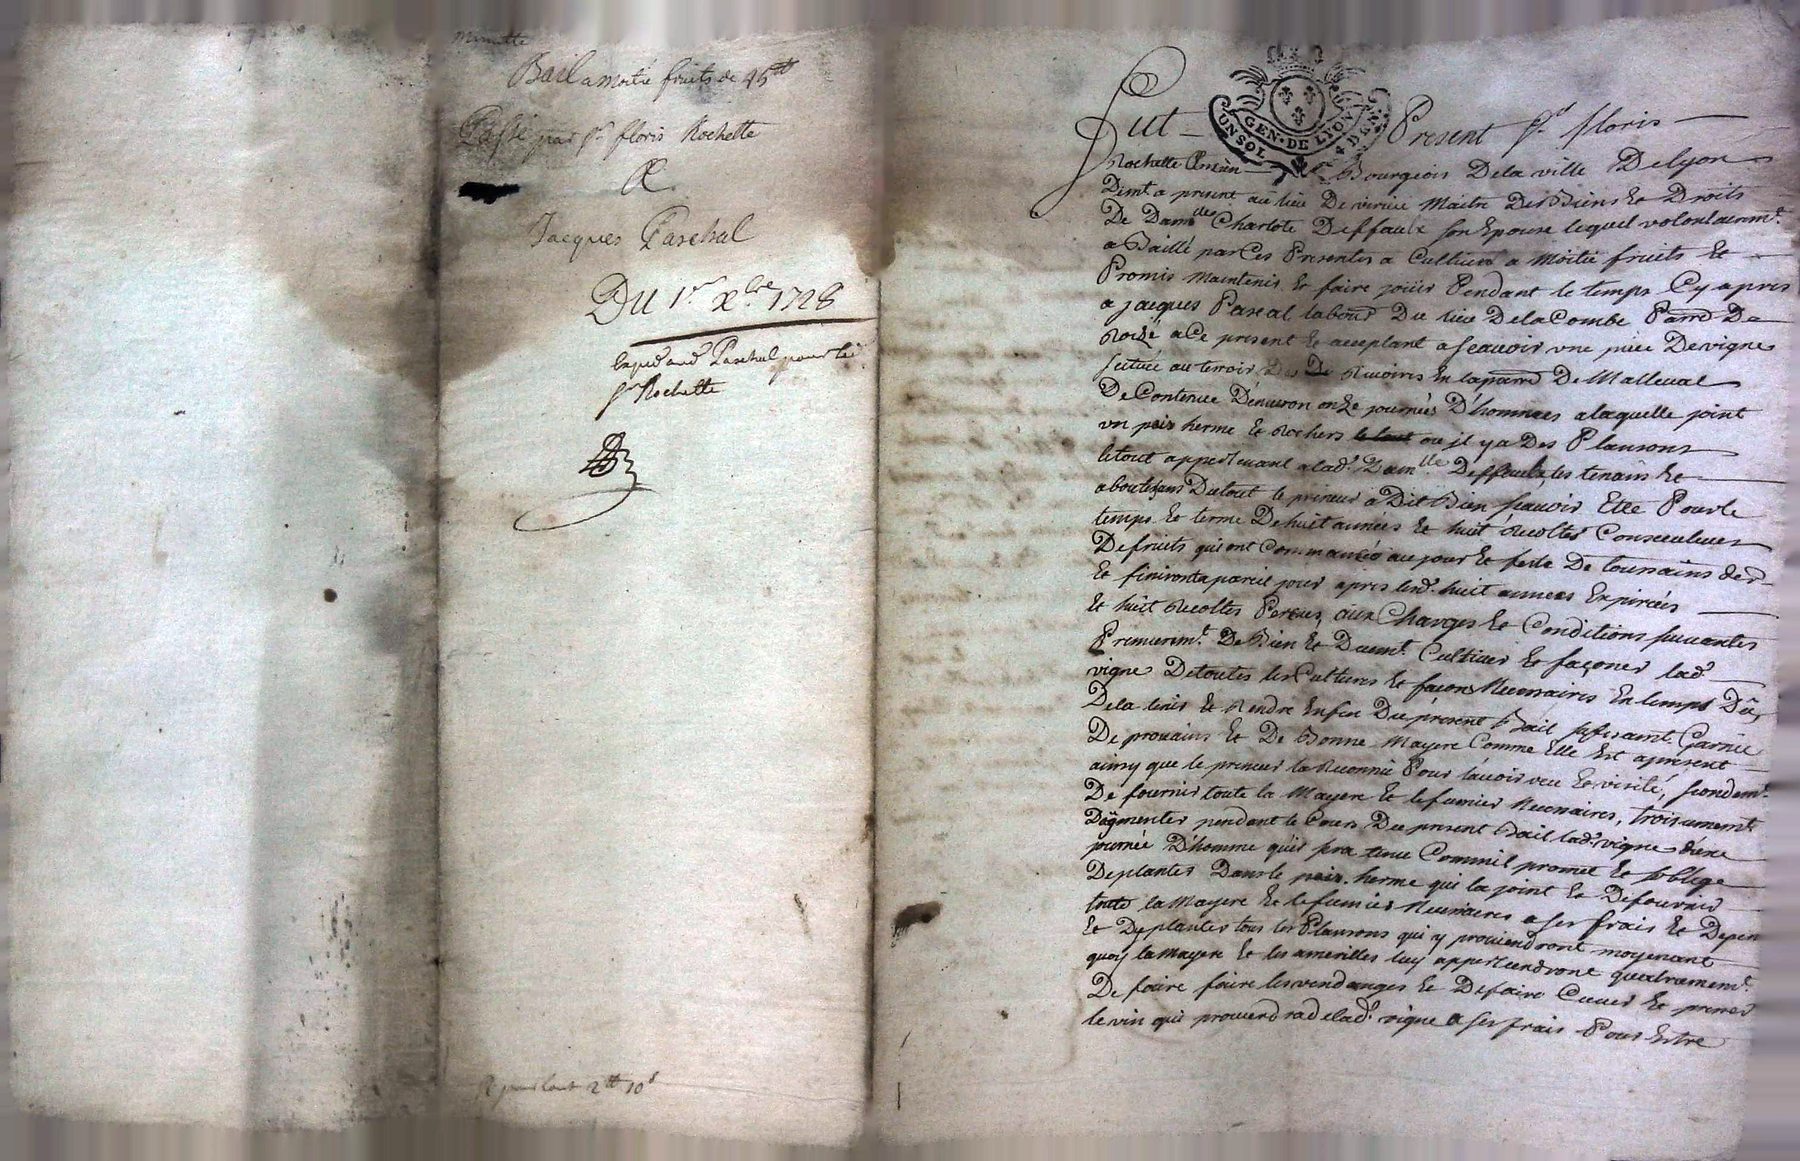 minutte
Bail a moitié fruits de 45tt
Passé par Sr floris Rochette
A
Jacques Paschal
Du 1r xbre 1728
Expedié aud Paschal pour le
Sr Rochette
pour tout 2tt 10s
GEN. DE LYON
UN SOL 4 DEN.
Fut Present Sr floris
Rochette Bourgeois Dela ville Delyon
Demt a present au lieu De verieu Maitre Des Biens Et Droits
De Damlle Charlote Deffaulx son Epouse lequel volontairemt
a Baillé par Ces Presentes a Cultiver a Moitié fruits Et
Promis Maintenir Et faire joüir Pendant le temps Cy apres
a jacques Pascal labour Du lieu DelaCombe Parre De
Roisé a Ce present Et acceptant a scauoir vne piece De vigne
scituée au terroir Des De Rivoires En la parre De Malleval
De Contenue D'environ onze journées D'hommes a laquelle joint
vn païs herme Et Rochers le tout ou jl y a Des Plansons
le tout appertenant a lad. Damlle Deffaulx, les tenans Et
aboutissans Du tout le preneur a Dit Bien scauoir Et ce Pour le
temps Et terme De huit années Et huit Recoltes Consecutives
De fruits qui ont Commancés au jour Et feste De toussains der
Et finiront a pareil jour apres lesd. huit annees Expirées
Et huit Recoltes Percues, aux Charges Et Conditions suivantes
Premieremt. De Bien Et Duemt. Cultiver Et façoner lad.
vigne De toutes les Cultures Et façons Necessaires En temps Dû,
De la tenir Et Rendre En fin Du présent Bail sufisamt. Garnie
De provains Et De Bonne Mayere Comme Elle Est apresent
ainsy que le preneur la Reconnu Pour lavoir veu Et visité, secondemt.
De fournir toute la Mayere Et le fumier Necessaires, troisiemement
D'augmenter pendant le Cours Du present Bail lad. vigne d'une
journée D'homme qu'il sera tenu Comm'il promet Et soblige
De planter Dans le païs herme qui la joint Et De fournir
toute la Mayere Et le fumier Necessaires a ses frais Et Depen
Et D'y planter tous les Plansons qui y proviendront moyenant
quoy la Mayere Et les amerilles luy appertiendront quatriememt.
De faire faire les vendanges Et De faire Cuver Et presser
le vin qui proviendra de lad. vigne a ses frais Pour Estre